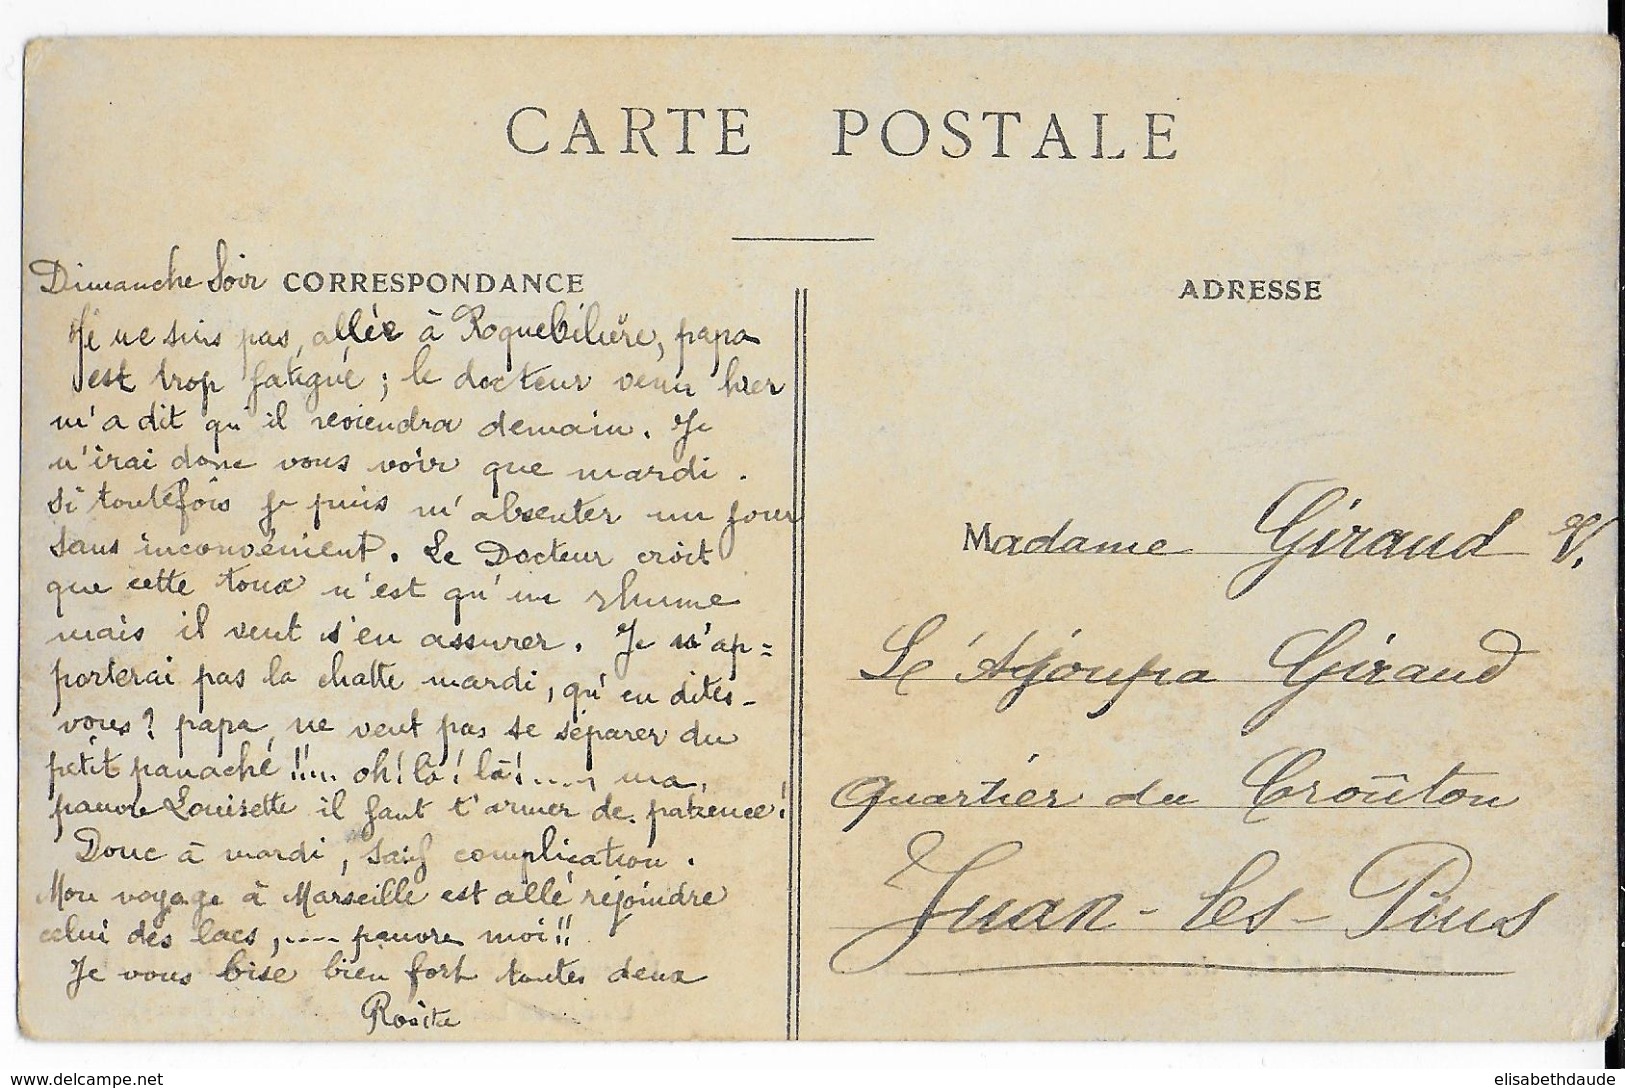 CARTE POSTALE
Dimanche Soir CORRESPONDANCE
Je ne suis pas allée à Roquebilière, papa
est trop fatigué ; le docteur venu hier
m'a dit qu'il reviendra demain. Je
n'irai donc vous voir que mardi.
si toutefois je puis m'absenter un jour
sans inconvénient. Le Docteur croit
que cette toux n'est qu'un rhume
mais il veut s'en assurer. Je n'ap=
porterai pas la chatte mardi, qu'en dites-
vous? papa ne veut pas se séparer du
petit panaché !!.... oh! là! là! ...., ma
pauvre Louisette il faut t'armer de patience!
Donc à mardi, sauf complication.
Mon voyage à Marseille est allé rejoindre
celui des lacs, .... pauvre moi!!
Je vous bise bien fort toutes deux
Rosita
ADRESSE
Madame Giraud V.
Le Ajoupa Giraud
Quartier du Croûton
Juan-les-Pins
www.delcampe.net
elisabethdaude